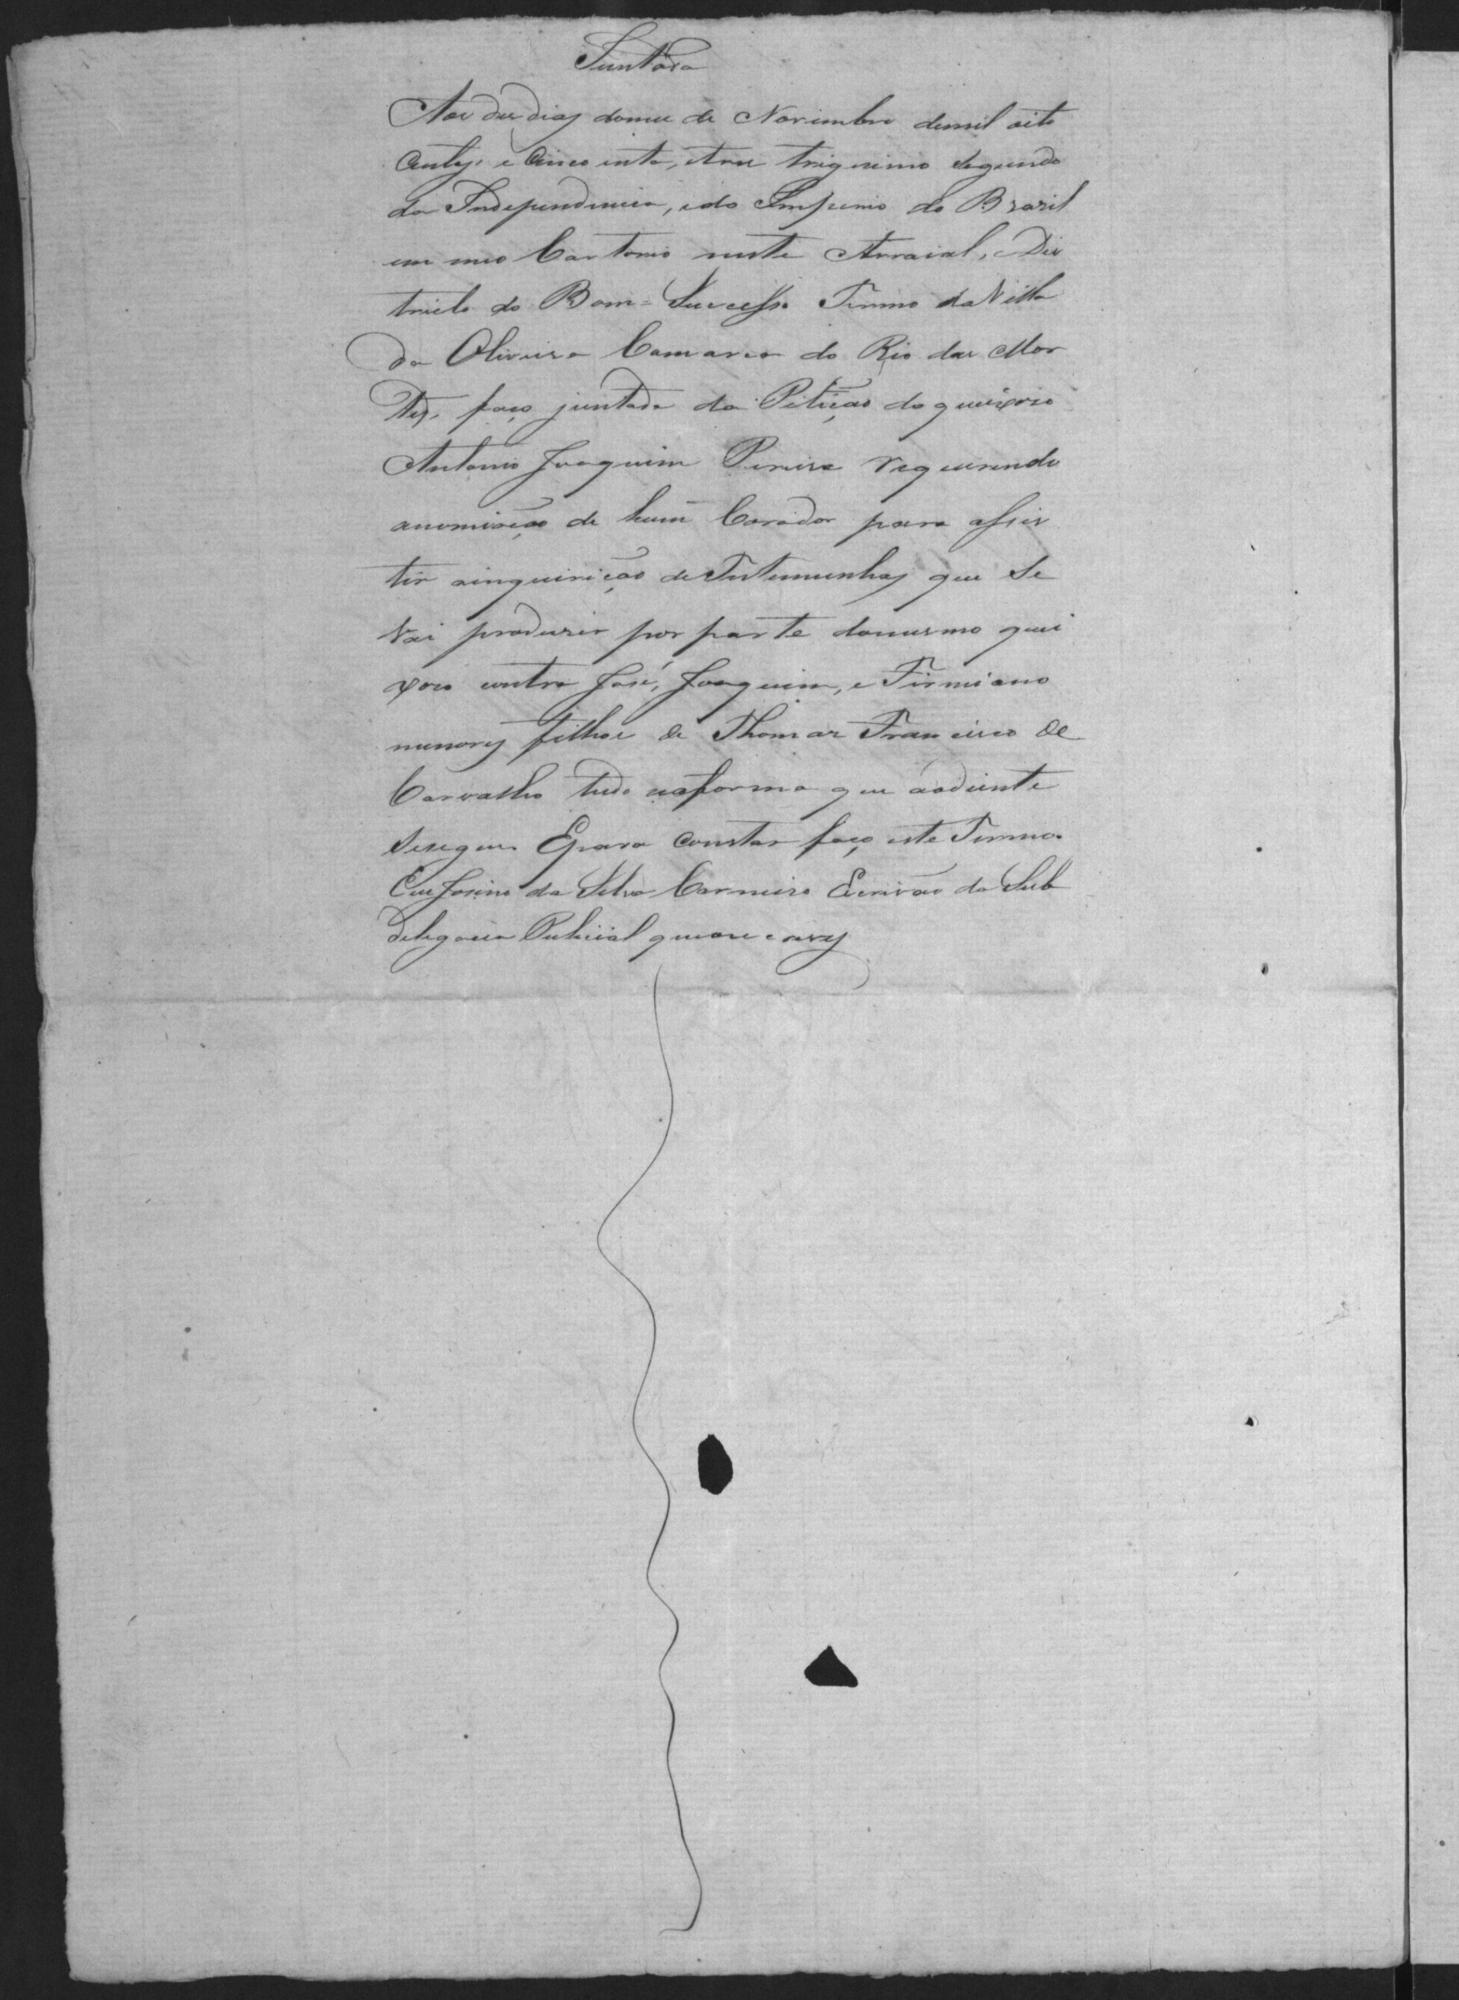 Juntada
Aos des dias do mes de Novembro de mil oito
centos e cincoenta, e tres trigesimo segundo
da Independencia, e do Imperio do Brazil
em meo Cartorio neste Arraial, e Dis
tricto do Bom=Successo Termo da Villa
da Oliveira Comarca do Rio das Mor
tes, faço juntada da Petição do queixozo
Antonio Joaquim Pereira requerendo
anomiação de hum Corador para assis
tir ainquirição de Testemunhas que se
vai produzir por parte do mesmo quei
xozo contra José, Joaquim, e Firmiano
menores filhos de Thomas Francisco de
Carvalho tudo na forma que aodiente
sesegue. E para constar faço este Termo.
Eu Josino da Silva Carneiro Escrivão da Sub
delegacia Policial que o escrevy